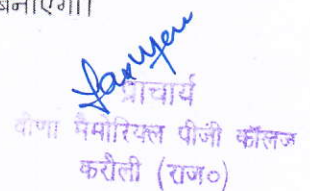 बनाएगा।
प्राचार्य
वीणा मैमोरियल पीजी कॉलेज
करौली (राज०)